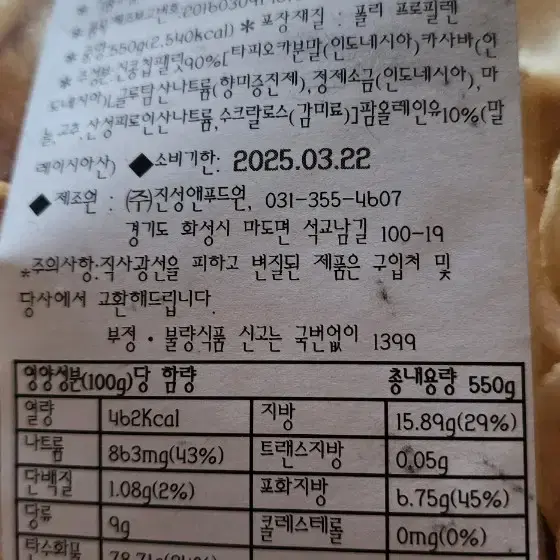 * 품목보고번호:20160304
* 중량:550g(2,540kcal) * 포장재질 : 폴리 프로필렌
* 주성분:진콩칩펠렛90%[타피오카분말(인도네시아)카사바(인
도네시아)L글루탐산나트륨(향미증진제),정제소금(인도네시아),마
늘,고추,산성피로인산나트륨,수크랄로스(감미료)]팜올레인유10%(말
레이시아산) ◆소비기한: 2025.03.22
◆ 제조원 : (주)진성앤푸드원, 031-355-4607
경기도 화성시 마도면 석교남길 100-19
*주의사항:직사광선을 피하고 변질된 제품은 구입처 및
당사에서 교환해드립니다.
부정 · 불량식품 신고는 국번없이 1399
영양성분(100g)당 함량 총내용량 550g
열량 462Kcal 지방 15.89g(29%)
나트륨 863mg(43%) 트랜스지방 0.05g
단백질 1.08g(2%) 포화지방 6.75g(45%)
당류 9g 콜레스테롤 0mg(0%)
탄수화물